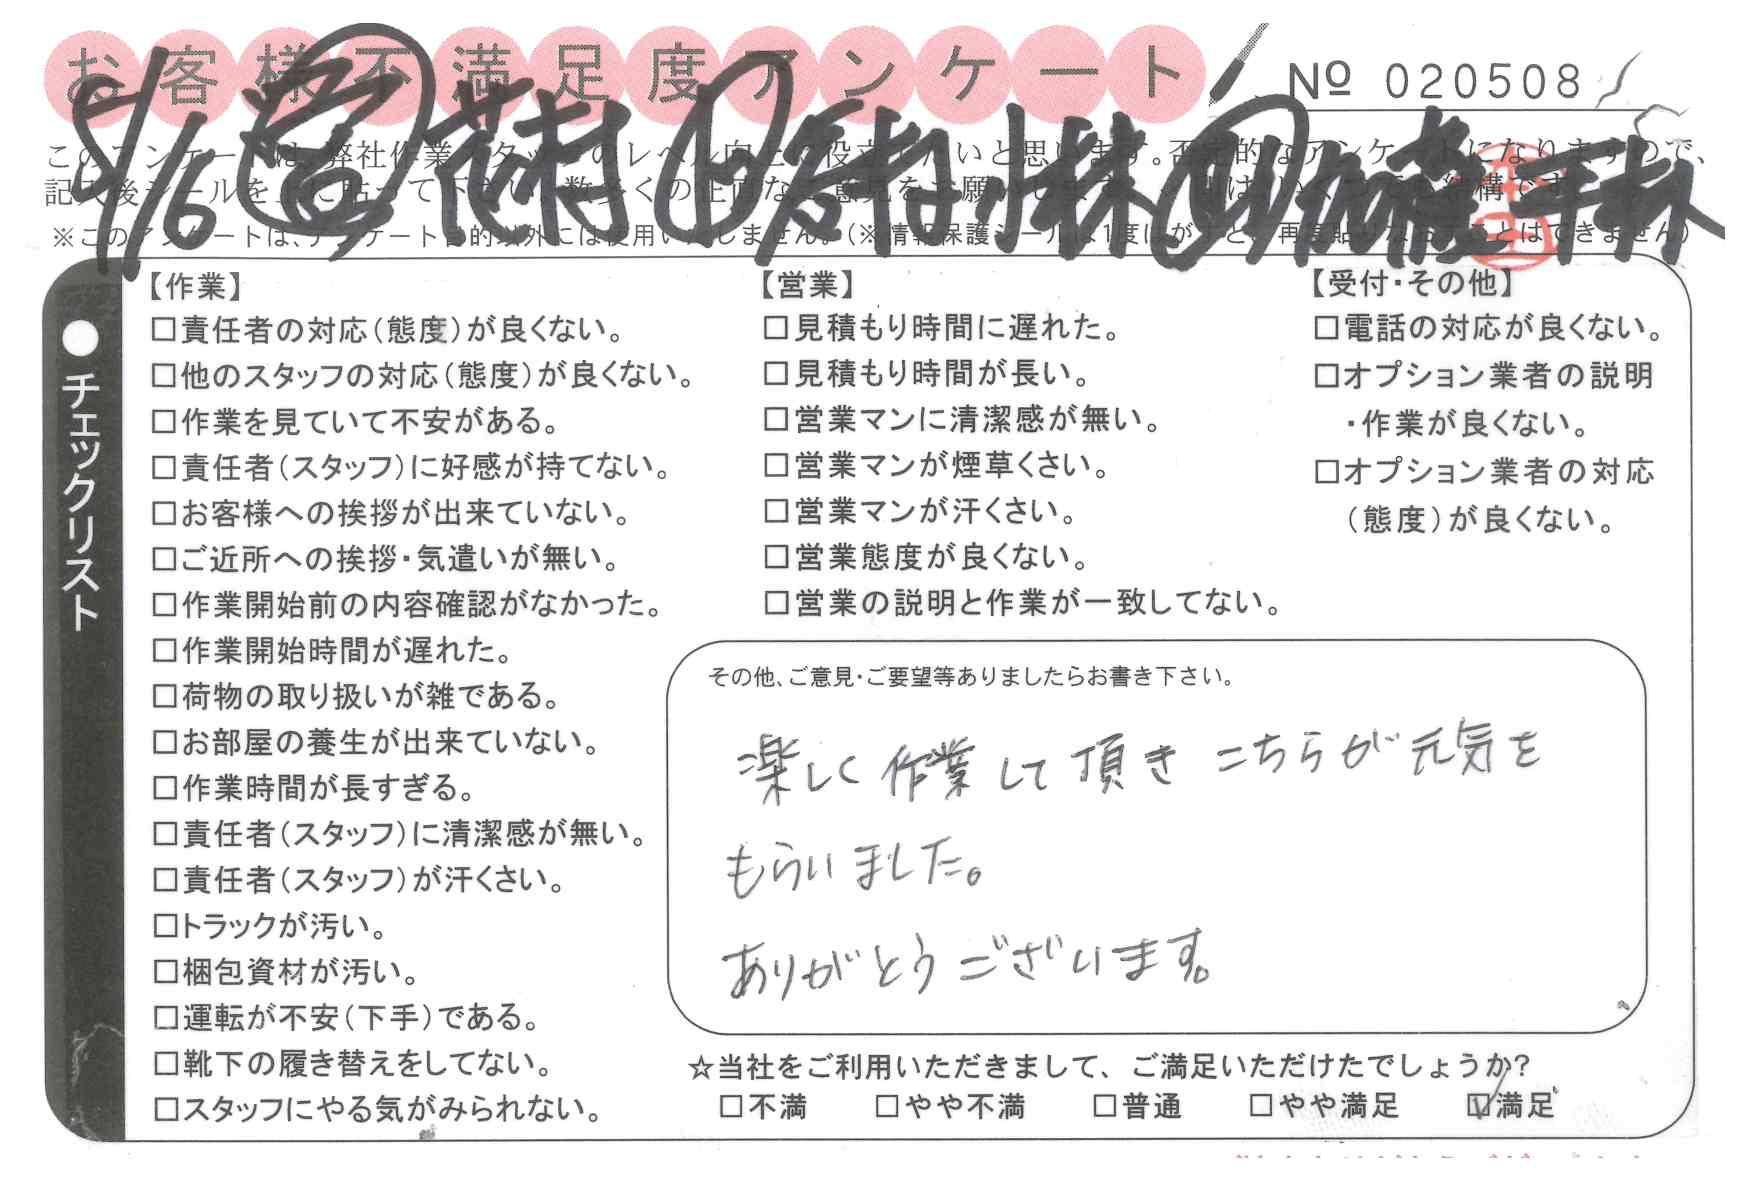 お客様不満足度アンケート
№ 020508
8/6 花村 小林
このアンケートは、弊社作業スタッフのレベル向上に役立てたいと思います。否定的なアンケートになりますので、
記入後シールを上に貼って下さい。数多くの正直なご意見をお願いします。
※このアンケートは、アンケート目的以外には使用いたしません。(※情報保護シールは1度はがすと、再度貼りなおすことはできません)
●チェックリスト
【作業】
□責任者の対応(態度)が良くない。
□他のスタッフの対応(態度)が良くない。
□作業を見ていて不安がある。
□責任者(スタッフ)に好感が持てない。
□お客様への挨拶が出来ていない。
□ご近所への挨拶・気遣いが無い。
□作業開始前の内容確認がなかった。
□作業開始時間が遅れた。
□荷物の取り扱いが雑である。
□お部屋の養生が出来ていない。
□作業時間が長すぎる。
□責任者(スタッフ)に清潔感が無い。
□責任者(スタッフ)が汗くさい。
□トラックが汚い。
□梱包資材が汚い。
□運転が不安(下手)である。
□靴下の履き替えをしてない。
□スタッフにやる気がみられない。
【営業】
□見積もり時間に遅れた。
□見積もり時間が長い。
□営業マンに清潔感が無い。
□営業マンが煙草くさい。
□営業マンが汗くさい。
□営業態度が良くない。
□営業の説明と作業が一致してない。
【受付・その他】
□電話の対応が良くない。
□オプション業者の説明
・作業が良くない。
□オプション業者の対応
(態度)が良くない。
その他、ご意見・ご要望等ありましたらお書き下さい。
楽しく作業して頂き こちらが元気を
もらいました。
ありがとうございます。
☆当社をご利用いただきまして、ご満足いただけたでしょうか?
□不満 □やや不満 □普通 □やや満足 ☑満足